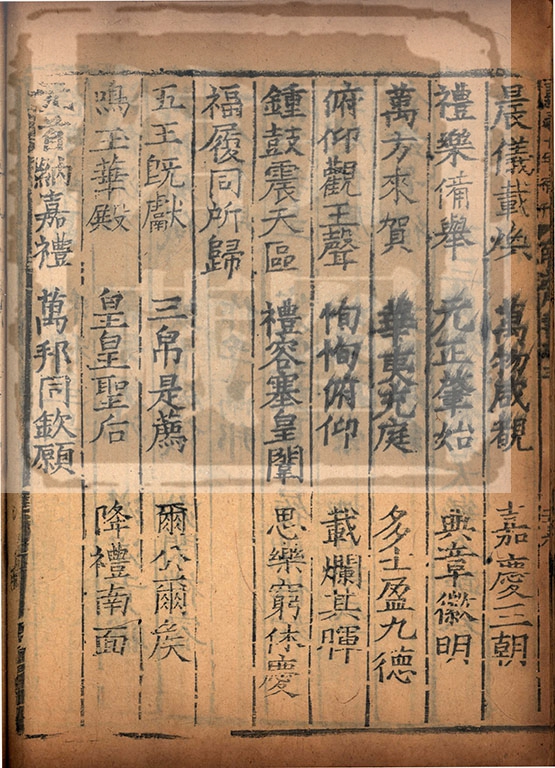 晨儀載煥 萬物咸覩 嘉慶三朝
禮樂備舉 元正肇始 典章徽明
萬方來賀 華夷充庭 多士盈九德
俯仰觀玉聲 恂恂俯仰 載爛其暉
鍾鼓震天區 禮容塞皇闈 思樂窮休慶
福履同所歸
五玉旣獻 三帛是薦 爾公爾矦
鳴玉華殿 皇皇聖后 降禮南面
元首納嘉禮 萬邦同欽願